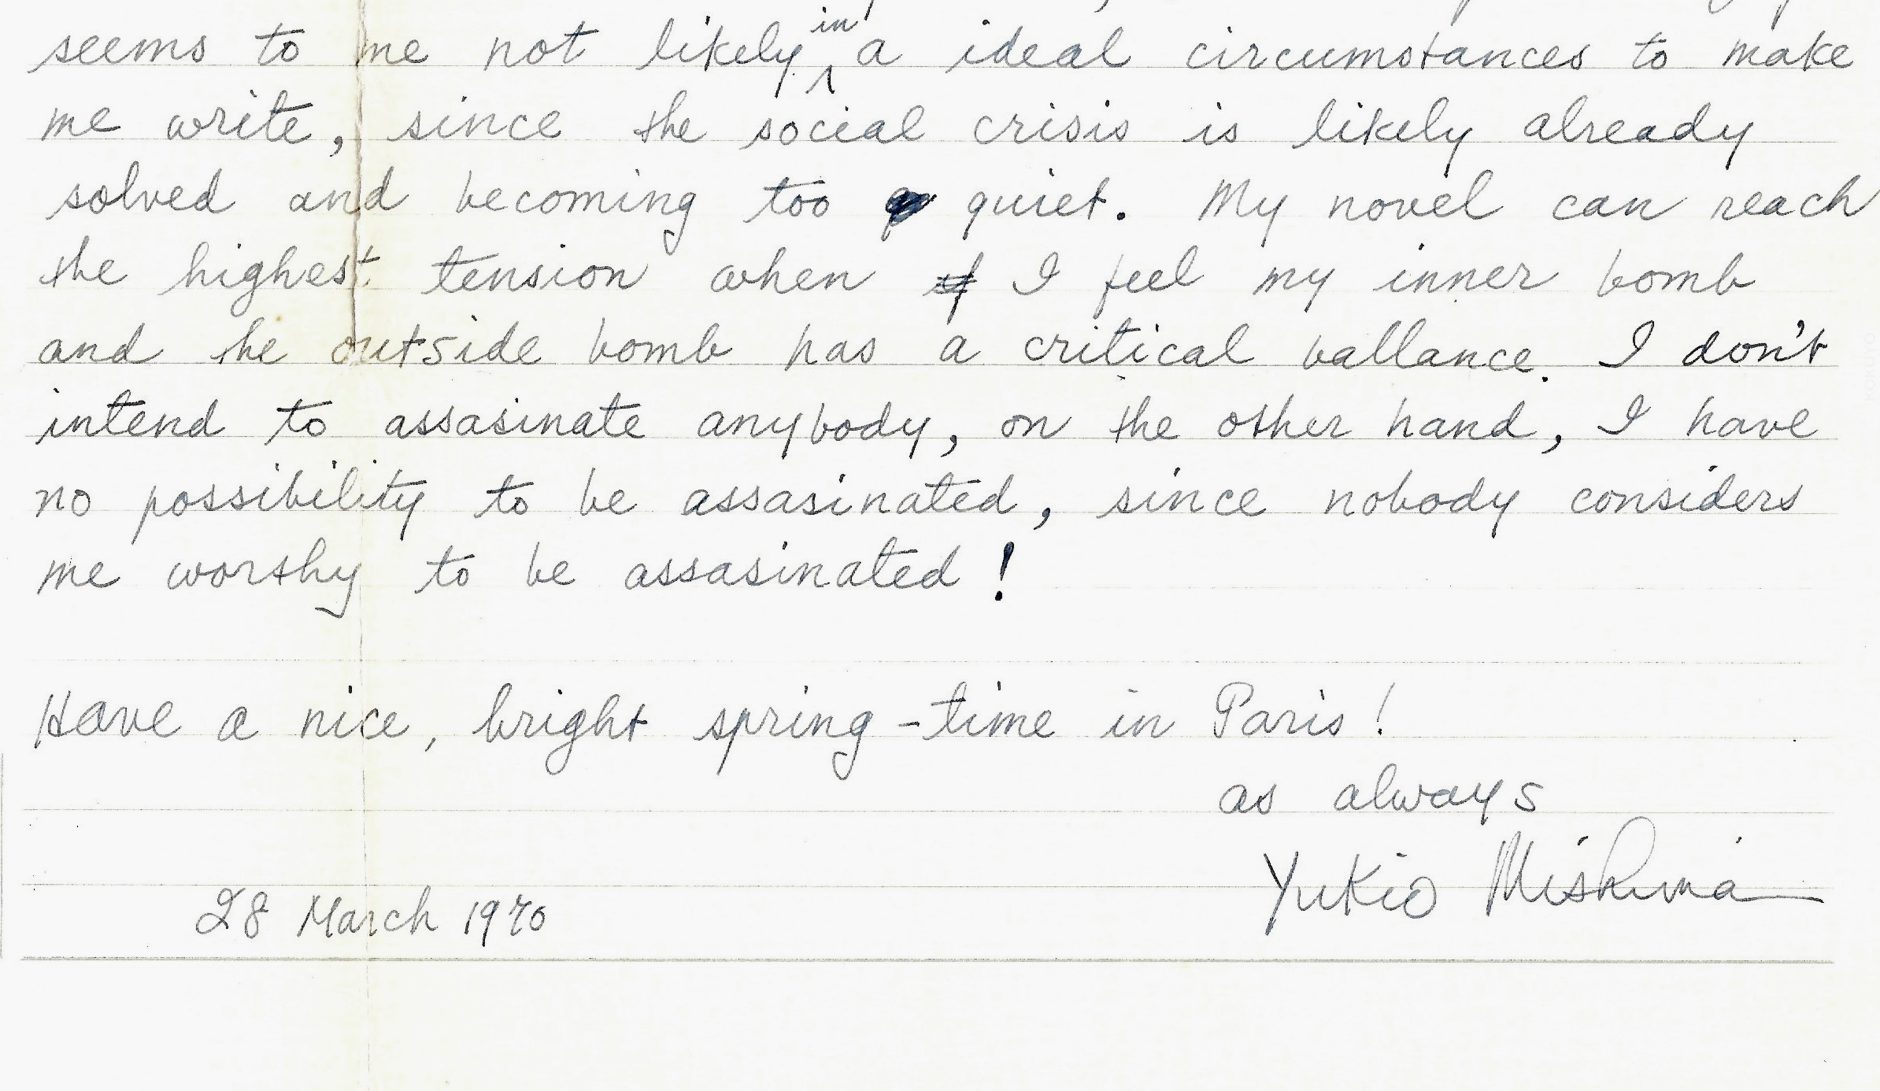 seems to me not likely in a ideal circumstances to make
me write, since the social crisis is likely already
solved and becoming too quiet. My novel can reach
the highest tension when I feel my inner bomb
and the outside bomb has a critical ballance. I don't
intend to assasinate anybody, on the other hand, I have
no possibility to be assasinated, since nobody considers
me worthy to be assasinated!
Have a nice, bright spring-time in Paris!
as always
Yukio Mishima
28 March 1970